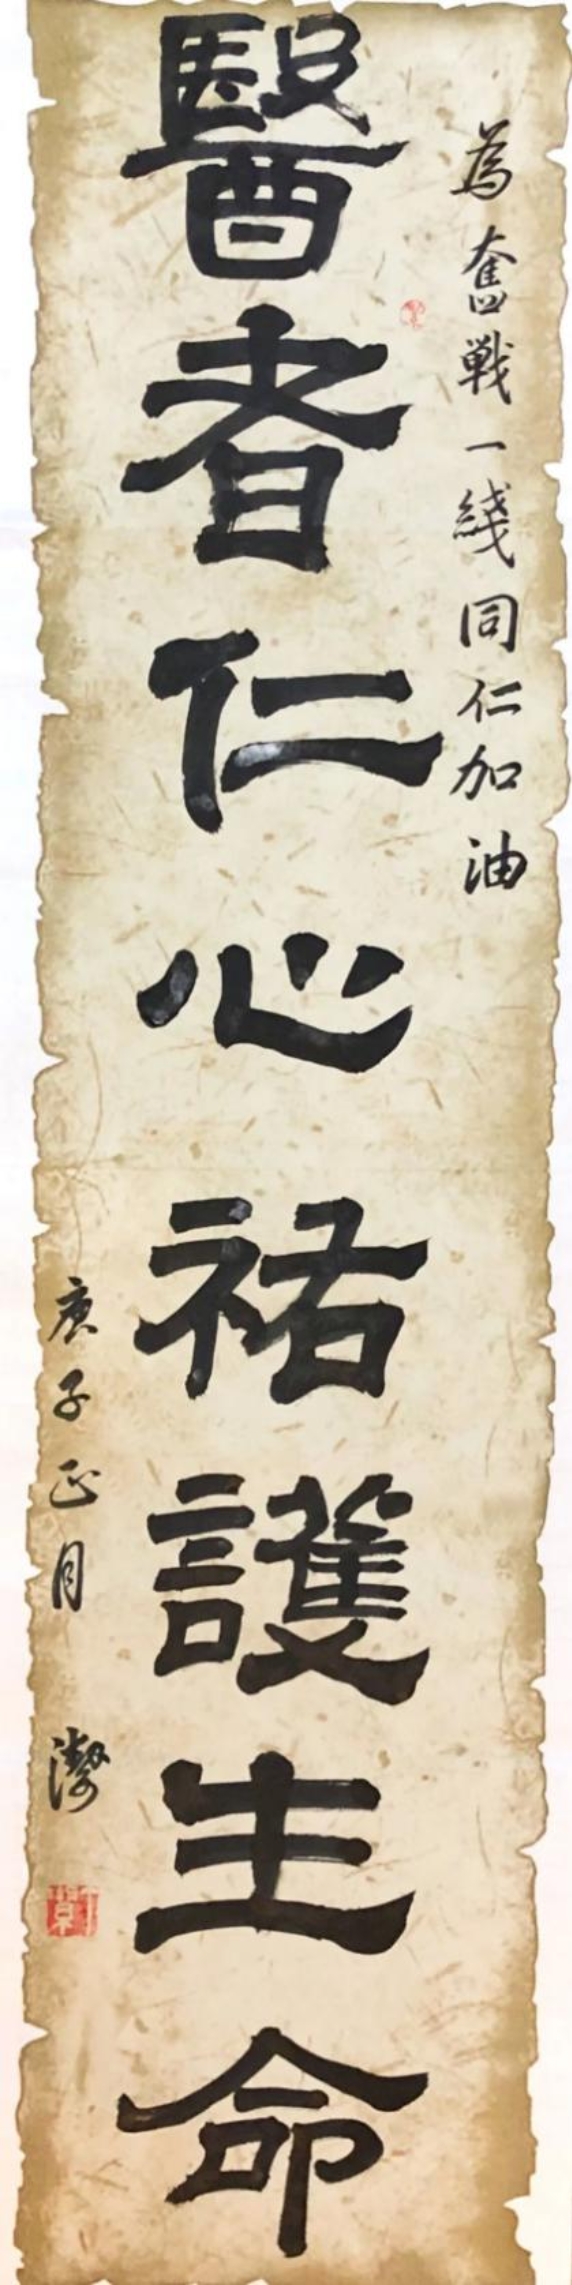 為奮戰一綫同仁加油
醫者仁心祐護生命
庚子正月
潔